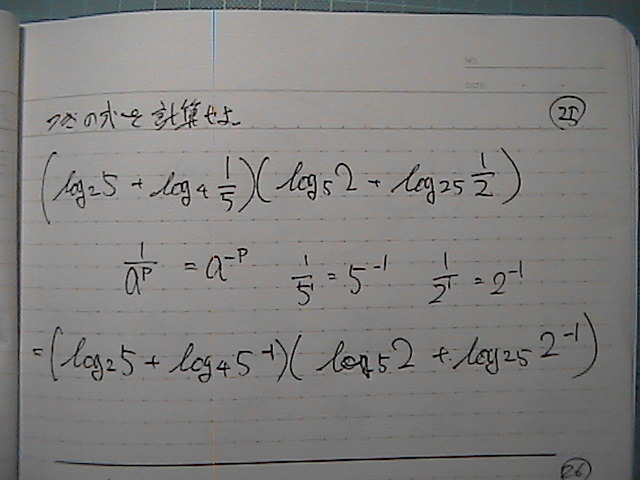 つぎの式を計算せよ。 ㉕
NO.
DATE
(log₂5 + log₄ 1/5)(log₅2 + log₂₅ 1/2)
1/aᵖ = a⁻ᵖ 1/5¹ = 5⁻¹ 1/2¹ = 2⁻¹
= (log₂5 + log₄5⁻¹)(log₅2 + log₂₅2⁻¹)
㉖